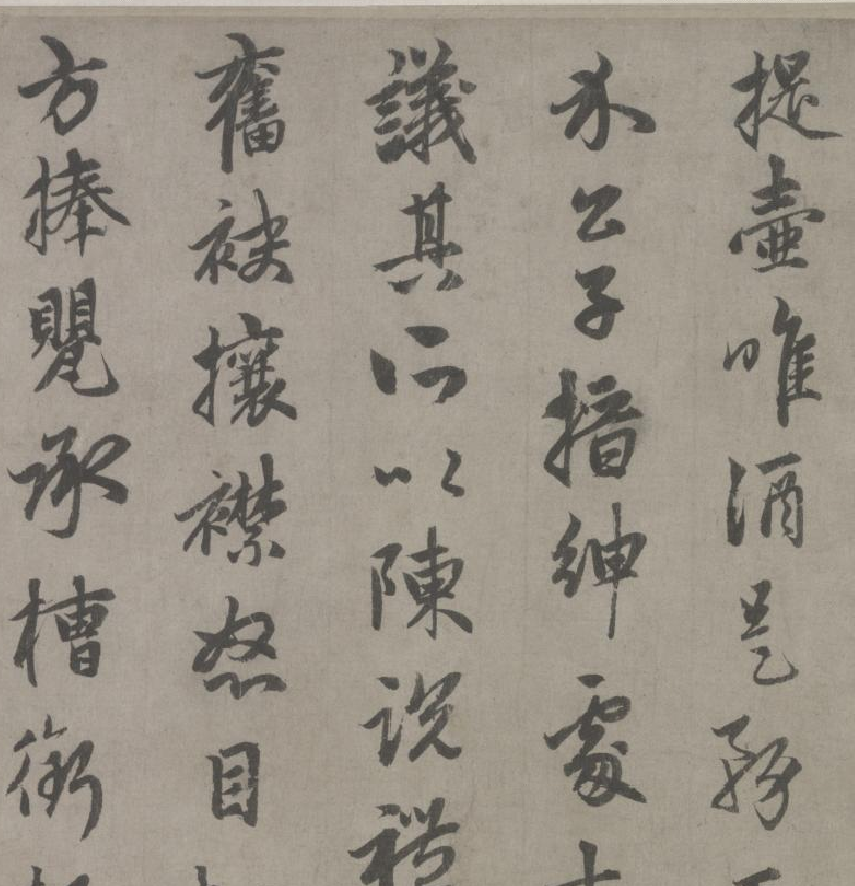 提壺唯酒是務
介公子搢紳處
議其所以陳説
奮袂攘襟怒目
方捧甖承槽銜